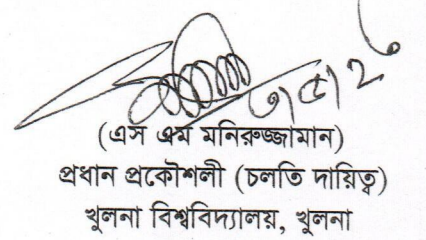 (এস এম মনিরুজ্জামান)
প্রধান প্রকৌশলী (চলতি দায়িত্ব)
খুলনা বিশ্ববিদ্যালয়, খুলনা